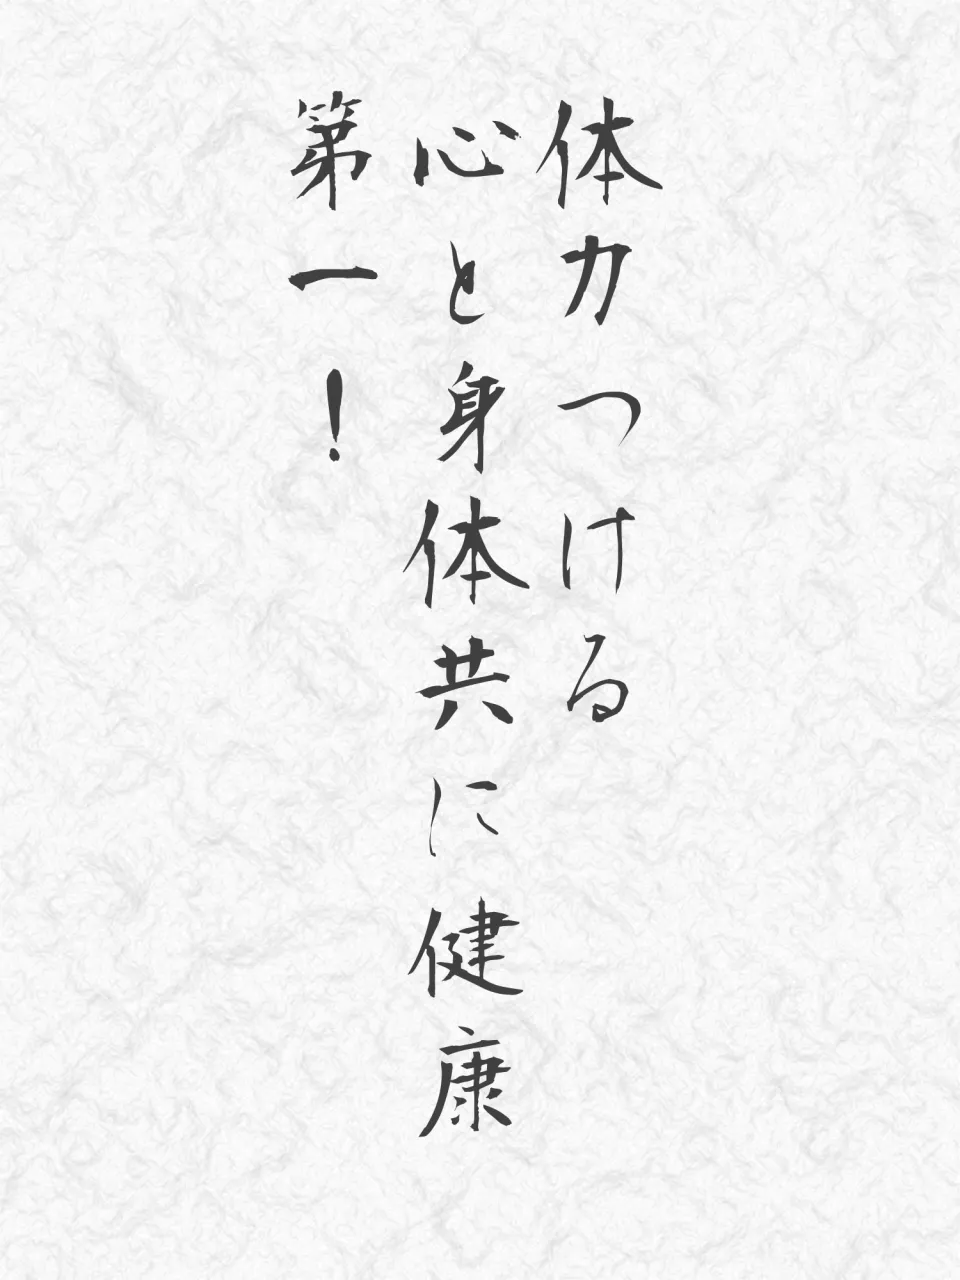 体力つける
心と身体共に健康
第一！